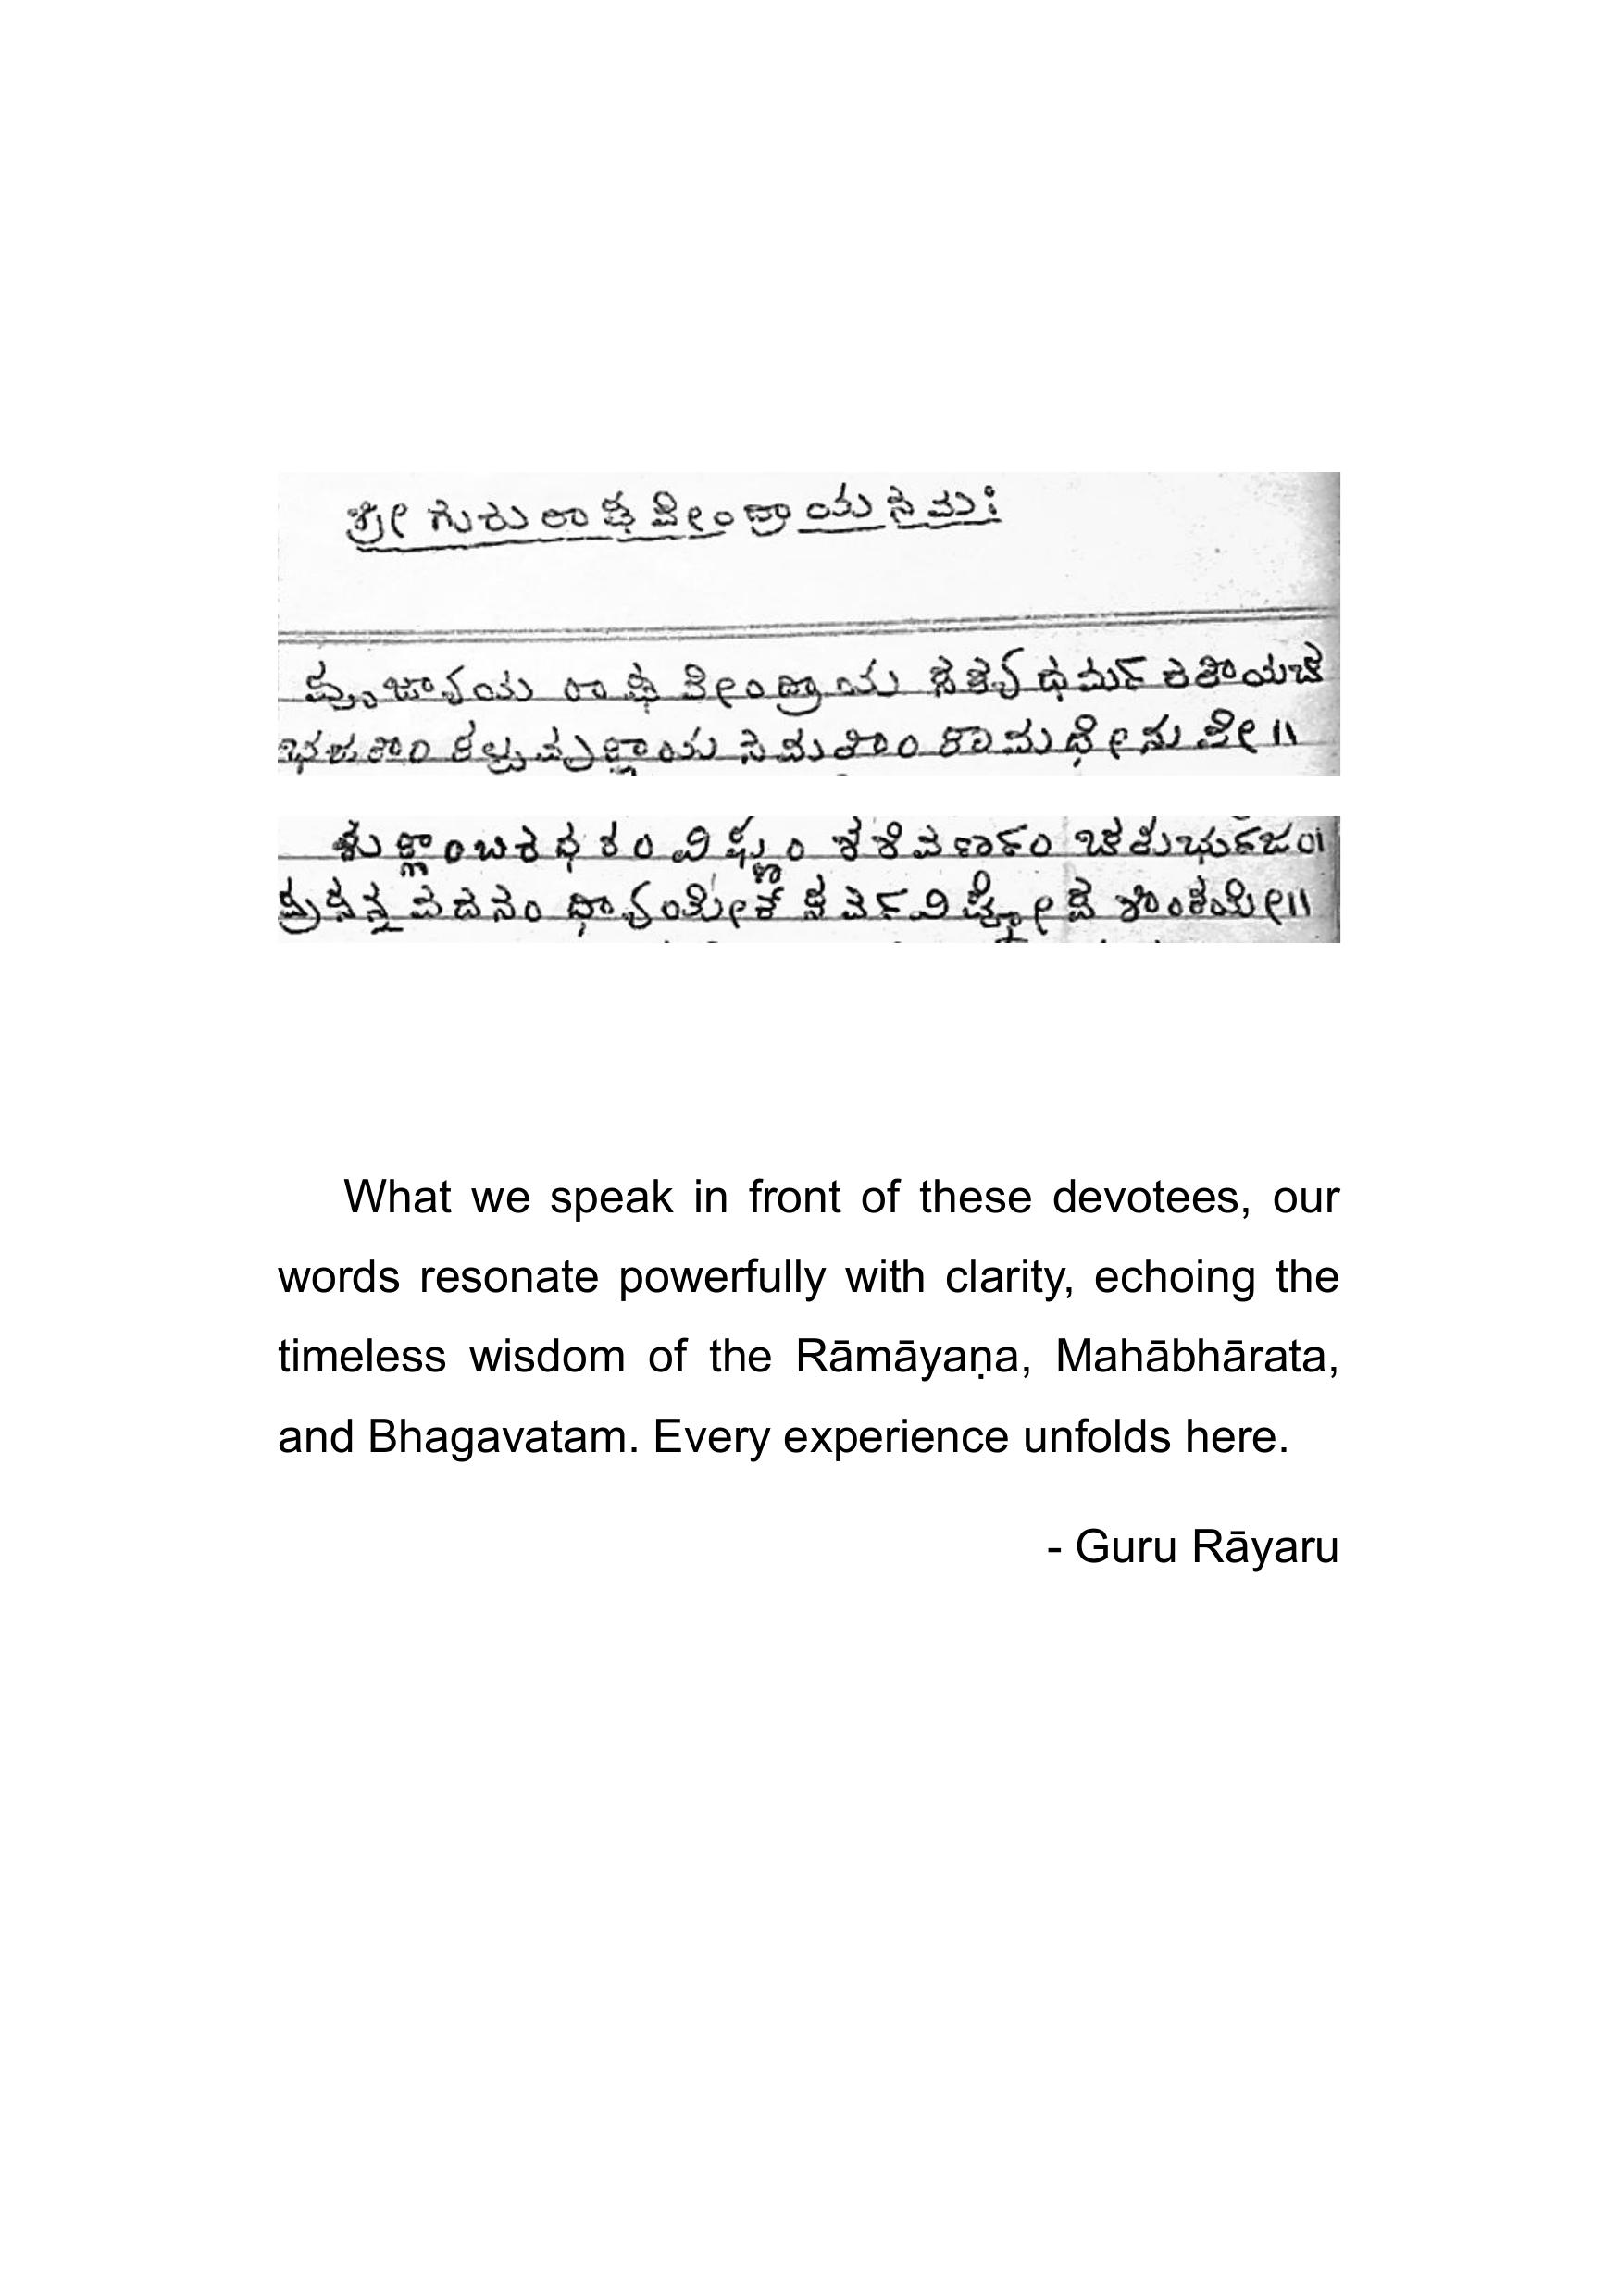 ಶ್ರೀ ಗುರು ರಾಘವೇಂದ್ರಾಯ ನಮಃ
ಪೂಜ್ಯಾಯ ರಾಘವೇಂದ್ರಾಯ ಸತ್ಯಧರ್ಮರತಾಯಚ
ಭಜತಾಂ ಕಲ್ಪವೃಕ್ಷಾಯ ನಮತಾಂ ಕಾಮಧೇನುವೇ॥
ಶುಕ್ಲಾಂಬರಧರಂ ವಿಷ್ಣುಂ ಶಶಿವರ್ಣಂ ಚತುರ್ಭುಜಂ।
ಪ್ರಸನ್ನ ವದನಂ ಧ್ಯಾಯೇತ್ ಸರ್ವವಿಘ್ನೋಪ ಶಾಂತಯೇ॥
What we speak in front of these devotees, our
words resonate powerfully with clarity, echoing the
timeless wisdom of the Rāmāyaṇa, Mahābhārata,
and Bhagavatam. Every experience unfolds here.
- Guru Rāyaru